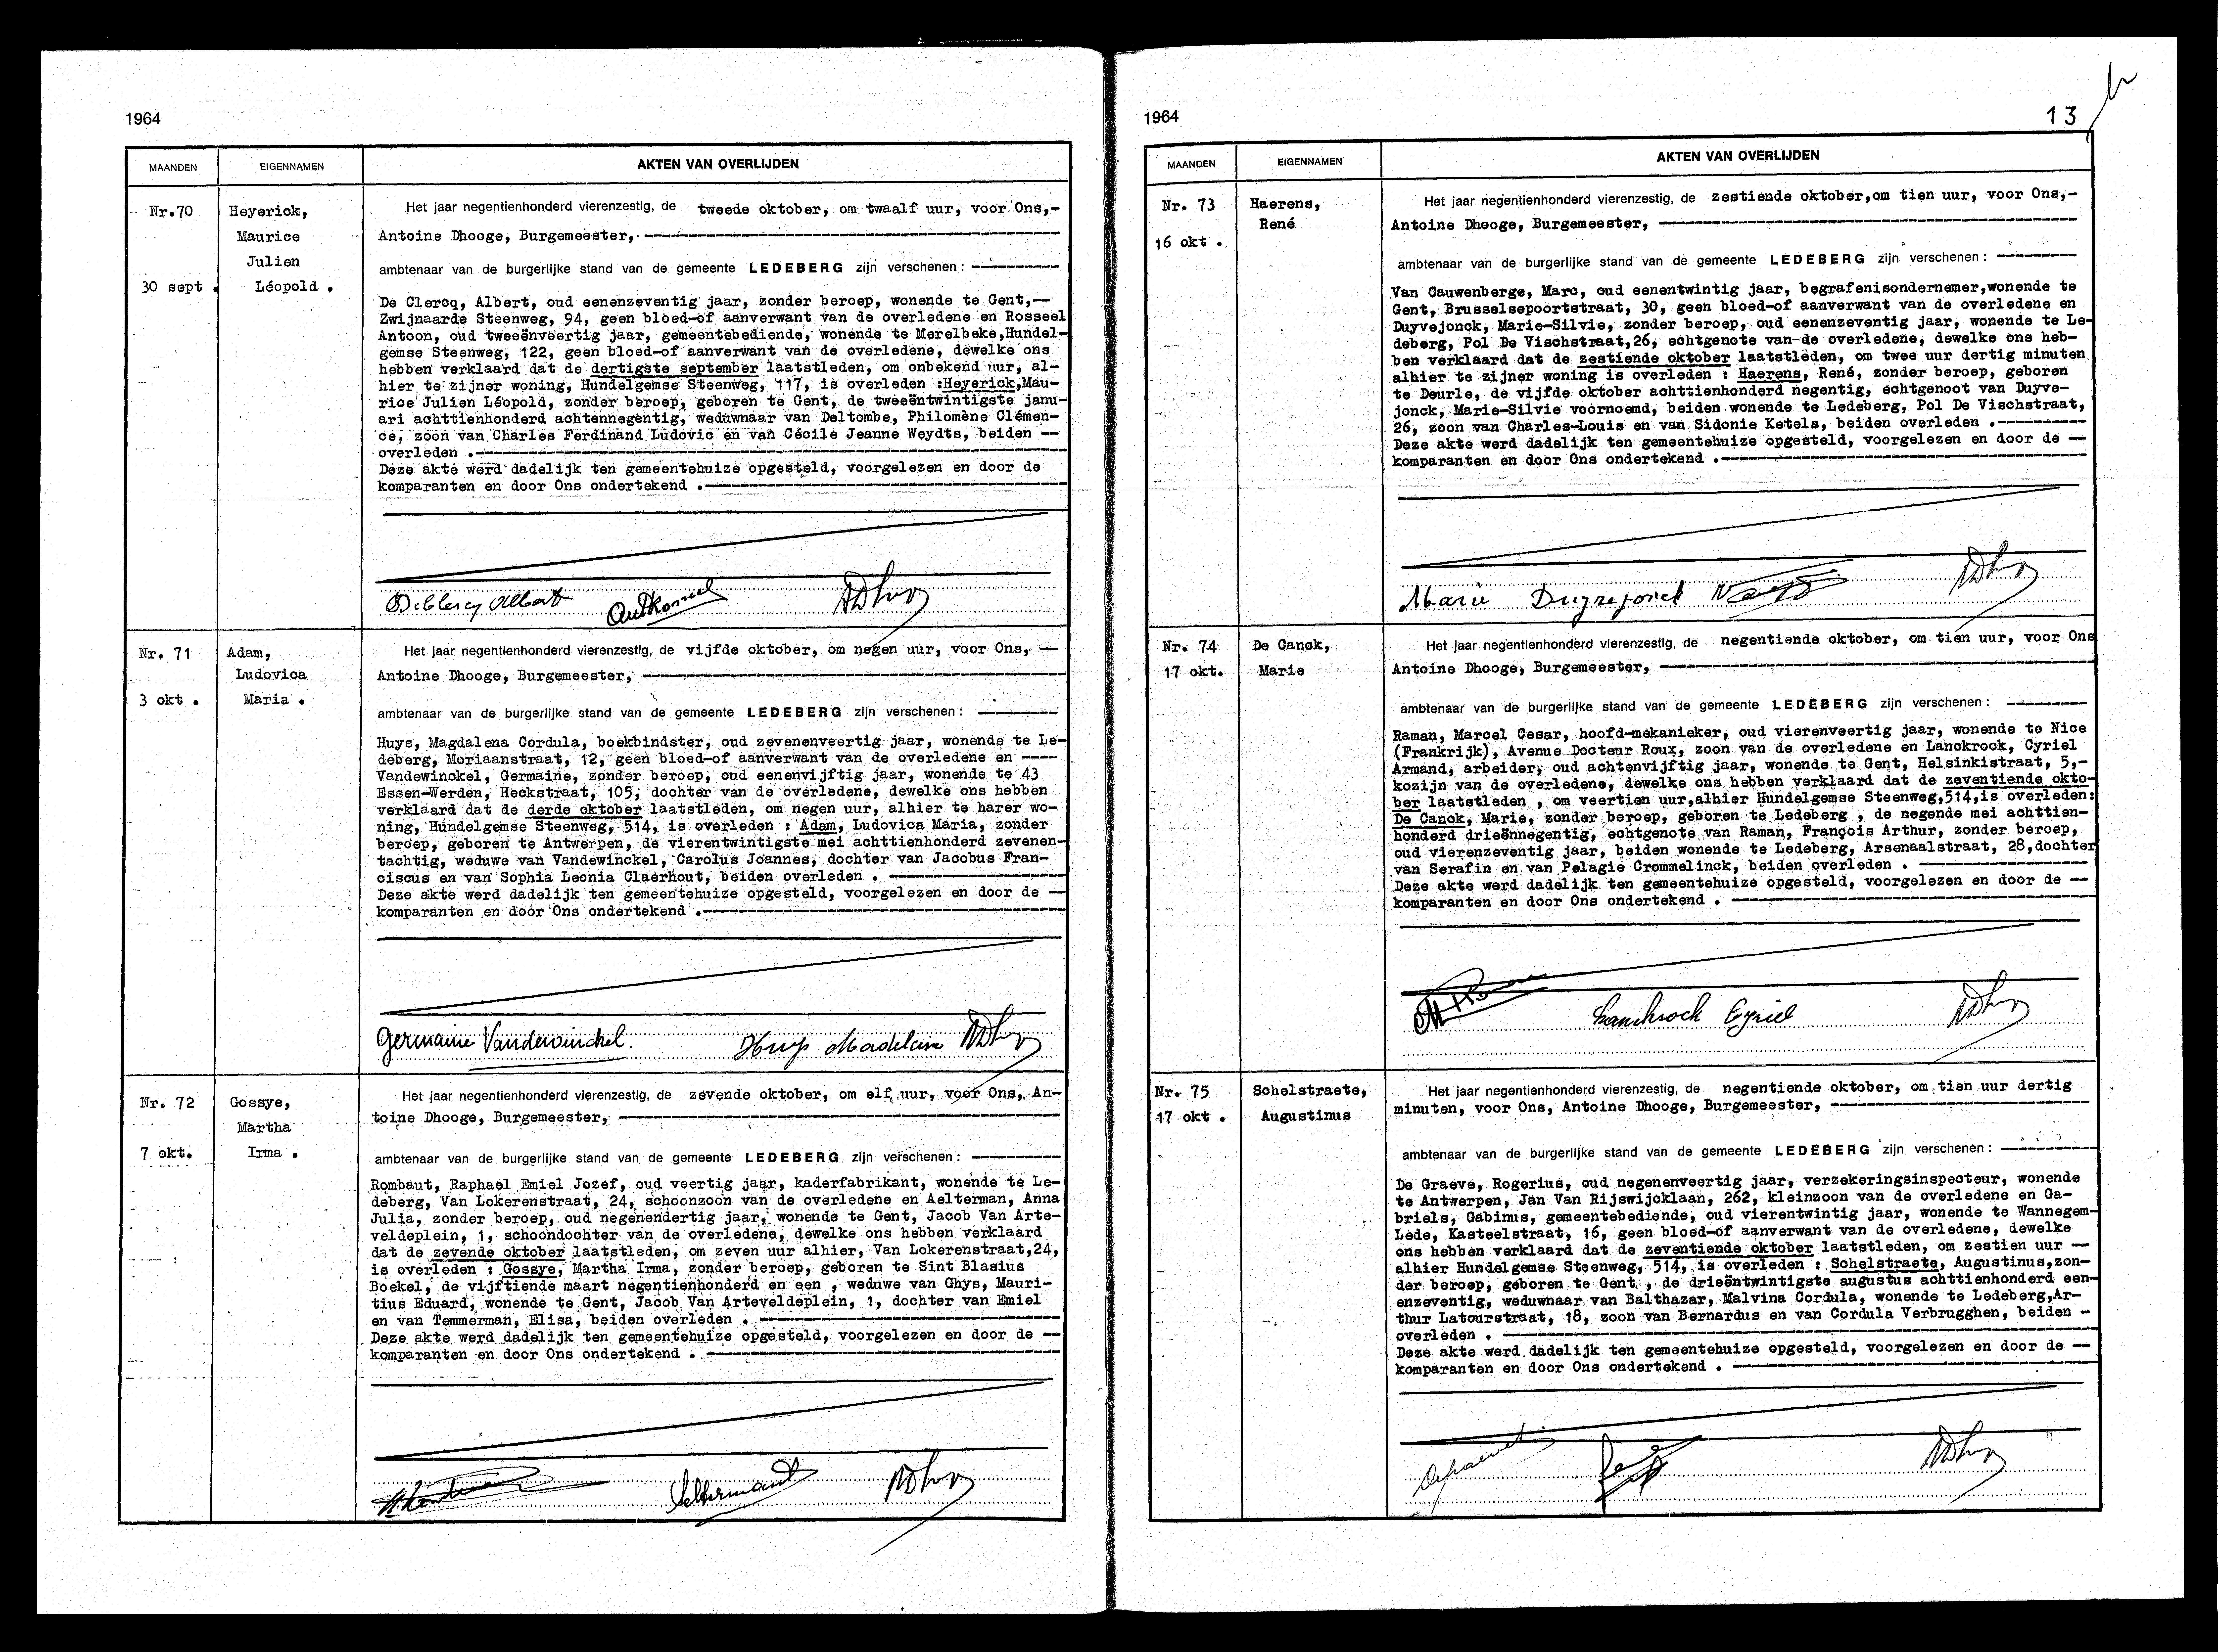 1964
MAANDEN
EIGENNAMEN
AKTEN VAN OVERLIJDEN
Nr.70
30 sept .
Heyerick,
Maurice
Julien
Léopold .
Het jaar negentienhonderd vierenzestig, de tweede oktober, om twaalf uur, voor Ons,-
Antoine Dhooge, Burgemeester,
ambtenaar van de burgerlijke stand van de gemeente LEDEBERG zijn verschenen :
De Clercq, Albert, oud eenenzeventig jaar, zonder beroep, wonende te Gent,—
Zwijnaarde Steenweg, 94, geen bloed-of aanverwant van de overledene en Rosseel
Antoon, oud tweeënveertig jaar, gemeentebediende, wonende te Merelbeke,Hundel-
gemse Steenweg, 122, geen bloed-of aanverwant van de overledene, dewelke ons
hebben verklaard dat de dertigste september laatstleden, om onbekend uur, al-
hier te zijner woning, Hundelgemse Steenweg, 117, is overleden :Heyerick,Mau-
rice Julien Léopold, zonder beroep, geboren te Gent, de tweeëntwintigste janu-
ari achttienhonderd achtennegentig, weduwnaar van Deltombe, Philomène Clémen-
ce, zoon van Charles Ferdinand Ludovic en van Cécile Jeanne Weydts, beiden --
overleden .
Deze akte werd dadelijk ten gemeentehuize opgesteld, voorgelezen en door de
komparanten en door Ons ondertekend .
DeClercq Albert
Nr. 71
3 okt .
Adam,
Ludovica
Maria .
Het jaar negentienhonderd vierenzestig, de vijfde oktober, om negen uur, voor Ons, --
Antoine Dhooge, Burgemeester,
ambtenaar van de burgerlijke stand van de gemeente LEDEBERG zijn verschenen :
Huys, Magdalena Cordula, boekbindster, oud zevenenveertig jaar, wonende te Le-
deberg, Moriaanstraat, 12, geen bloed-of aanverwant van de overledene en ----
Vandewinckel, Germaine, zonder beroep, oud eenenvijftig jaar, wonende te 43
Essen-Werden, Heckstraat, 105, dochter van de overledene, dewelke ons hebben
verklaard dat de derde oktober laatstleden, om negen uur, alhier te harer wo-
ning, Hundelgemse Steenweg, 514, is overleden : Adam, Ludovica Maria, zonder
beroep, geboren te Antwerpen, de vierentwintigste mei achttienhonderd zevenen-
tachtig, weduwe van Vandewinckel, Carolus Joannes, dochter van Jacobus Fran-
ciscus en van Sophia Leonia Claerhout, beiden overleden .
Deze akte werd dadelijk ten gemeentehuize opgesteld, voorgelezen en door de —
komparanten en door Ons ondertekend .
Germaine Vandewinckel. Huys Madeleine
Nr. 72
7 okt.
Gossye,
Martha
Irma .
Het jaar negentienhonderd vierenzestig, de zevende oktober, om elf uur, voor Ons, An-
toine Dhooge, Burgemeester,
ambtenaar van de burgerlijke stand van de gemeente LEDEBERG zijn verschenen :
Rombaut, Raphael Emiel Jozef, oud veertig jaar, kaderfabrikant, wonende te Le-
deberg, Van Lokerenstraat, 24, schoonzoon van de overledene en Aelterman, Anna
Julia, zonder beroep, oud negenendertig jaar, wonende te Gent, Jacob Van Arte-
veldeplein, 1, schoondochter van de overledene, dewelke ons hebben verklaard
dat de zevende oktober laatstleden, om zeven uur alhier, Van Lokerenstraat,24,
is overleden : Gossye, Martha Irma, zonder beroep, geboren te Sint Blasius
Boekel, de vijftiende maart negentienhonderd en een , weduwe van Ghys, Mauri-
tius Eduard, wonende te Gent, Jacob Van Arteveldeplein, 1, dochter van Emiel
en van Temmerman, Elisa, beiden overleden .
Deze akte werd dadelijk ten gemeentehuize opgesteld, voorgelezen en door de --
komparanten en door Ons ondertekend .
1964
13
MAANDEN
EIGENNAMEN
AKTEN VAN OVERLIJDEN
Nr. 73
16 okt .
Haerens,
René
Het jaar negentienhonderd vierenzestig, de zestiende oktober,om tien uur, voor Ons,-
Antoine Dhooge, Burgemeester,
ambtenaar van de burgerlijke stand van de gemeente LEDEBERG zijn verschenen :
Van Cauwenberge, Marc, oud eenentwintig jaar, begrafenisondernemer,wonende te
Gent, Brusselsepoortstraat, 30, geen bloed-of aanverwant van de overledene en
Duyvejonck, Marie-Silvie, zonder beroep, oud eenenzeventig jaar, wonende te Le-
deberg, Pol De Vischstraat,26, echtgenote van de overledene, dewelke ons heb-
ben verklaard dat de zestiende oktober laatstleden, om twee uur dertig minuten
alhier te zijner woning is overleden : Haerens, René, zonder beroep, geboren
te Deurle, de vijfde oktober achttienhonderd negentig, echtgenoot van Duyve-
jonck, Marie-Silvie voornoemd, beiden wonende te Ledeberg, Pol De Vischstraat,
26, zoon van Charles-Louis en van Sidonie Ketels, beiden overleden .
Deze akte werd dadelijk ten gemeentehuize opgesteld, voorgelezen en door de —
komparanten en door Ons ondertekend .
Marie Duyvejonck
Nr. 74
17 okt.
De Canck,
Marie
Het jaar negentienhonderd vierenzestig, de negentiende oktober, om tien uur, voor Ons
Antoine Dhooge, Burgemeester,
ambtenaar van de burgerlijke stand van de gemeente LEDEBERG zijn verschenen :
Raman, Marcel Cesar, hoofd-mekanieker, oud vierenveertig jaar, wonende te Nice
(Frankrijk), Avenue Docteur Roux, zoon van de overledene en Lanckrock, Cyriel
Armand, arbeider, oud achtenvijftig jaar, wonende te Gent, Helsinkistraat, 5,-
kozijn van de overledene, dewelke ons hebben verklaard dat de zeventiende okto-
ber laatstleden , om veertien uur,alhier Hundelgemse Steenweg,514,is overleden:
De Canck, Marie, zonder beroep, geboren te Ledeberg , de negende mei achttien-
honderd drieënnegentig, echtgenote van Raman, François Arthur, zonder beroep,
oud vierenzeventig jaar, beiden wonende te Ledeberg, Arsenaalstraat, 28,dochter
van Serafin en van Pelagie Crommelinck, beiden overleden .
Deze akte werd dadelijk ten gemeentehuize opgesteld, voorgelezen en door de --
komparanten en door Ons ondertekend .
Lanckrock Cyriel
Nr. 75
17 okt .
Schelstraete,
Augustinus
Het jaar negentienhonderd vierenzestig, de negentiende oktober, om tien uur dertig
minuten, voor Ons, Antoine Dhooge, Burgemeester,
ambtenaar van de burgerlijke stand van de gemeente LEDEBERG zijn verschenen :
De Graeve, Rogerius, oud negenenveertig jaar, verzekeringsinspecteur, wonende
te Antwerpen, Jan Van Rijswijcklaan, 262, kleinzoon van de overledene en Ga-
briels, Gabinus, gemeentebediende, oud vierentwintig jaar, wonende te Wannegem-
Lede, Kasteelstraat, 16, geen bloed-of aanverwant van de overledene, dewelke
ons hebben verklaard dat de zeventiende oktober laatstleden, om zestien uur —
alhier Hundelgemse Steenweg, 514, is overleden : Schelstraete, Augustinus,zon-
der beroep, geboren te Gent , de drieëntwintigste augustus achttienhonderd een-
enzeventig, weduwnaar van Balthazar, Malvina Cordula, wonende te Ledeberg,Ar-
thur Latourstraat, 18, zoon van Bernardus en van Cordula Verbrugghen, beiden -
overleden .
Deze akte werd dadelijk ten gemeentehuize opgesteld, voorgelezen en door de —
komparanten en door Ons ondertekend .